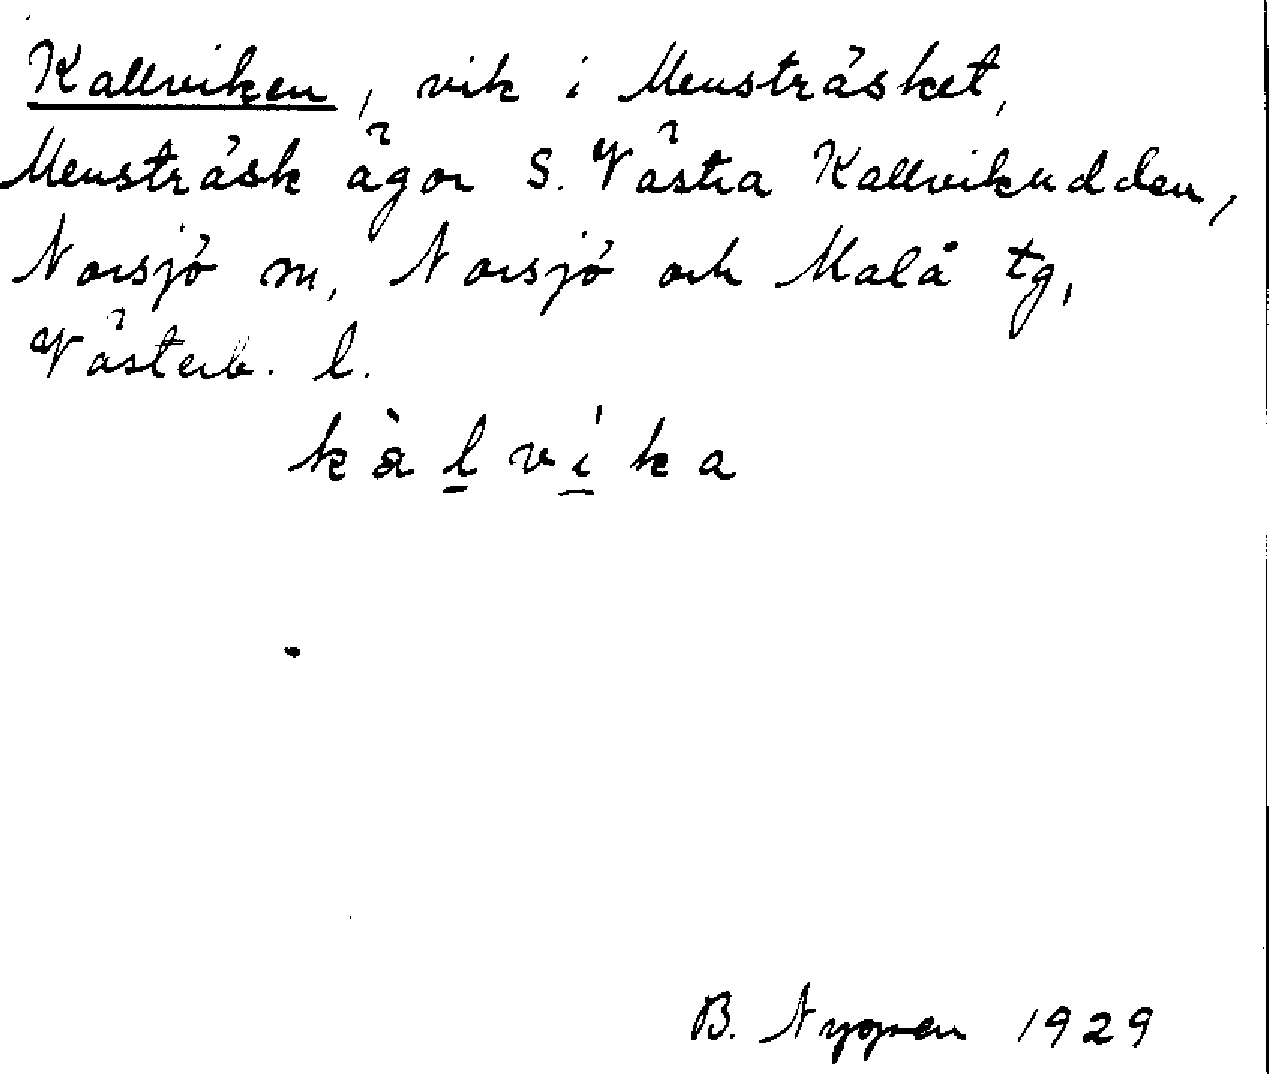 Kallviken, vik i Mensträsket,
Mensträsk ägor S. Västra Kallvikudden,
Norsjö m, Norsjö och Malå tg,
Västerb. l.
kàlvíka
B. 1929